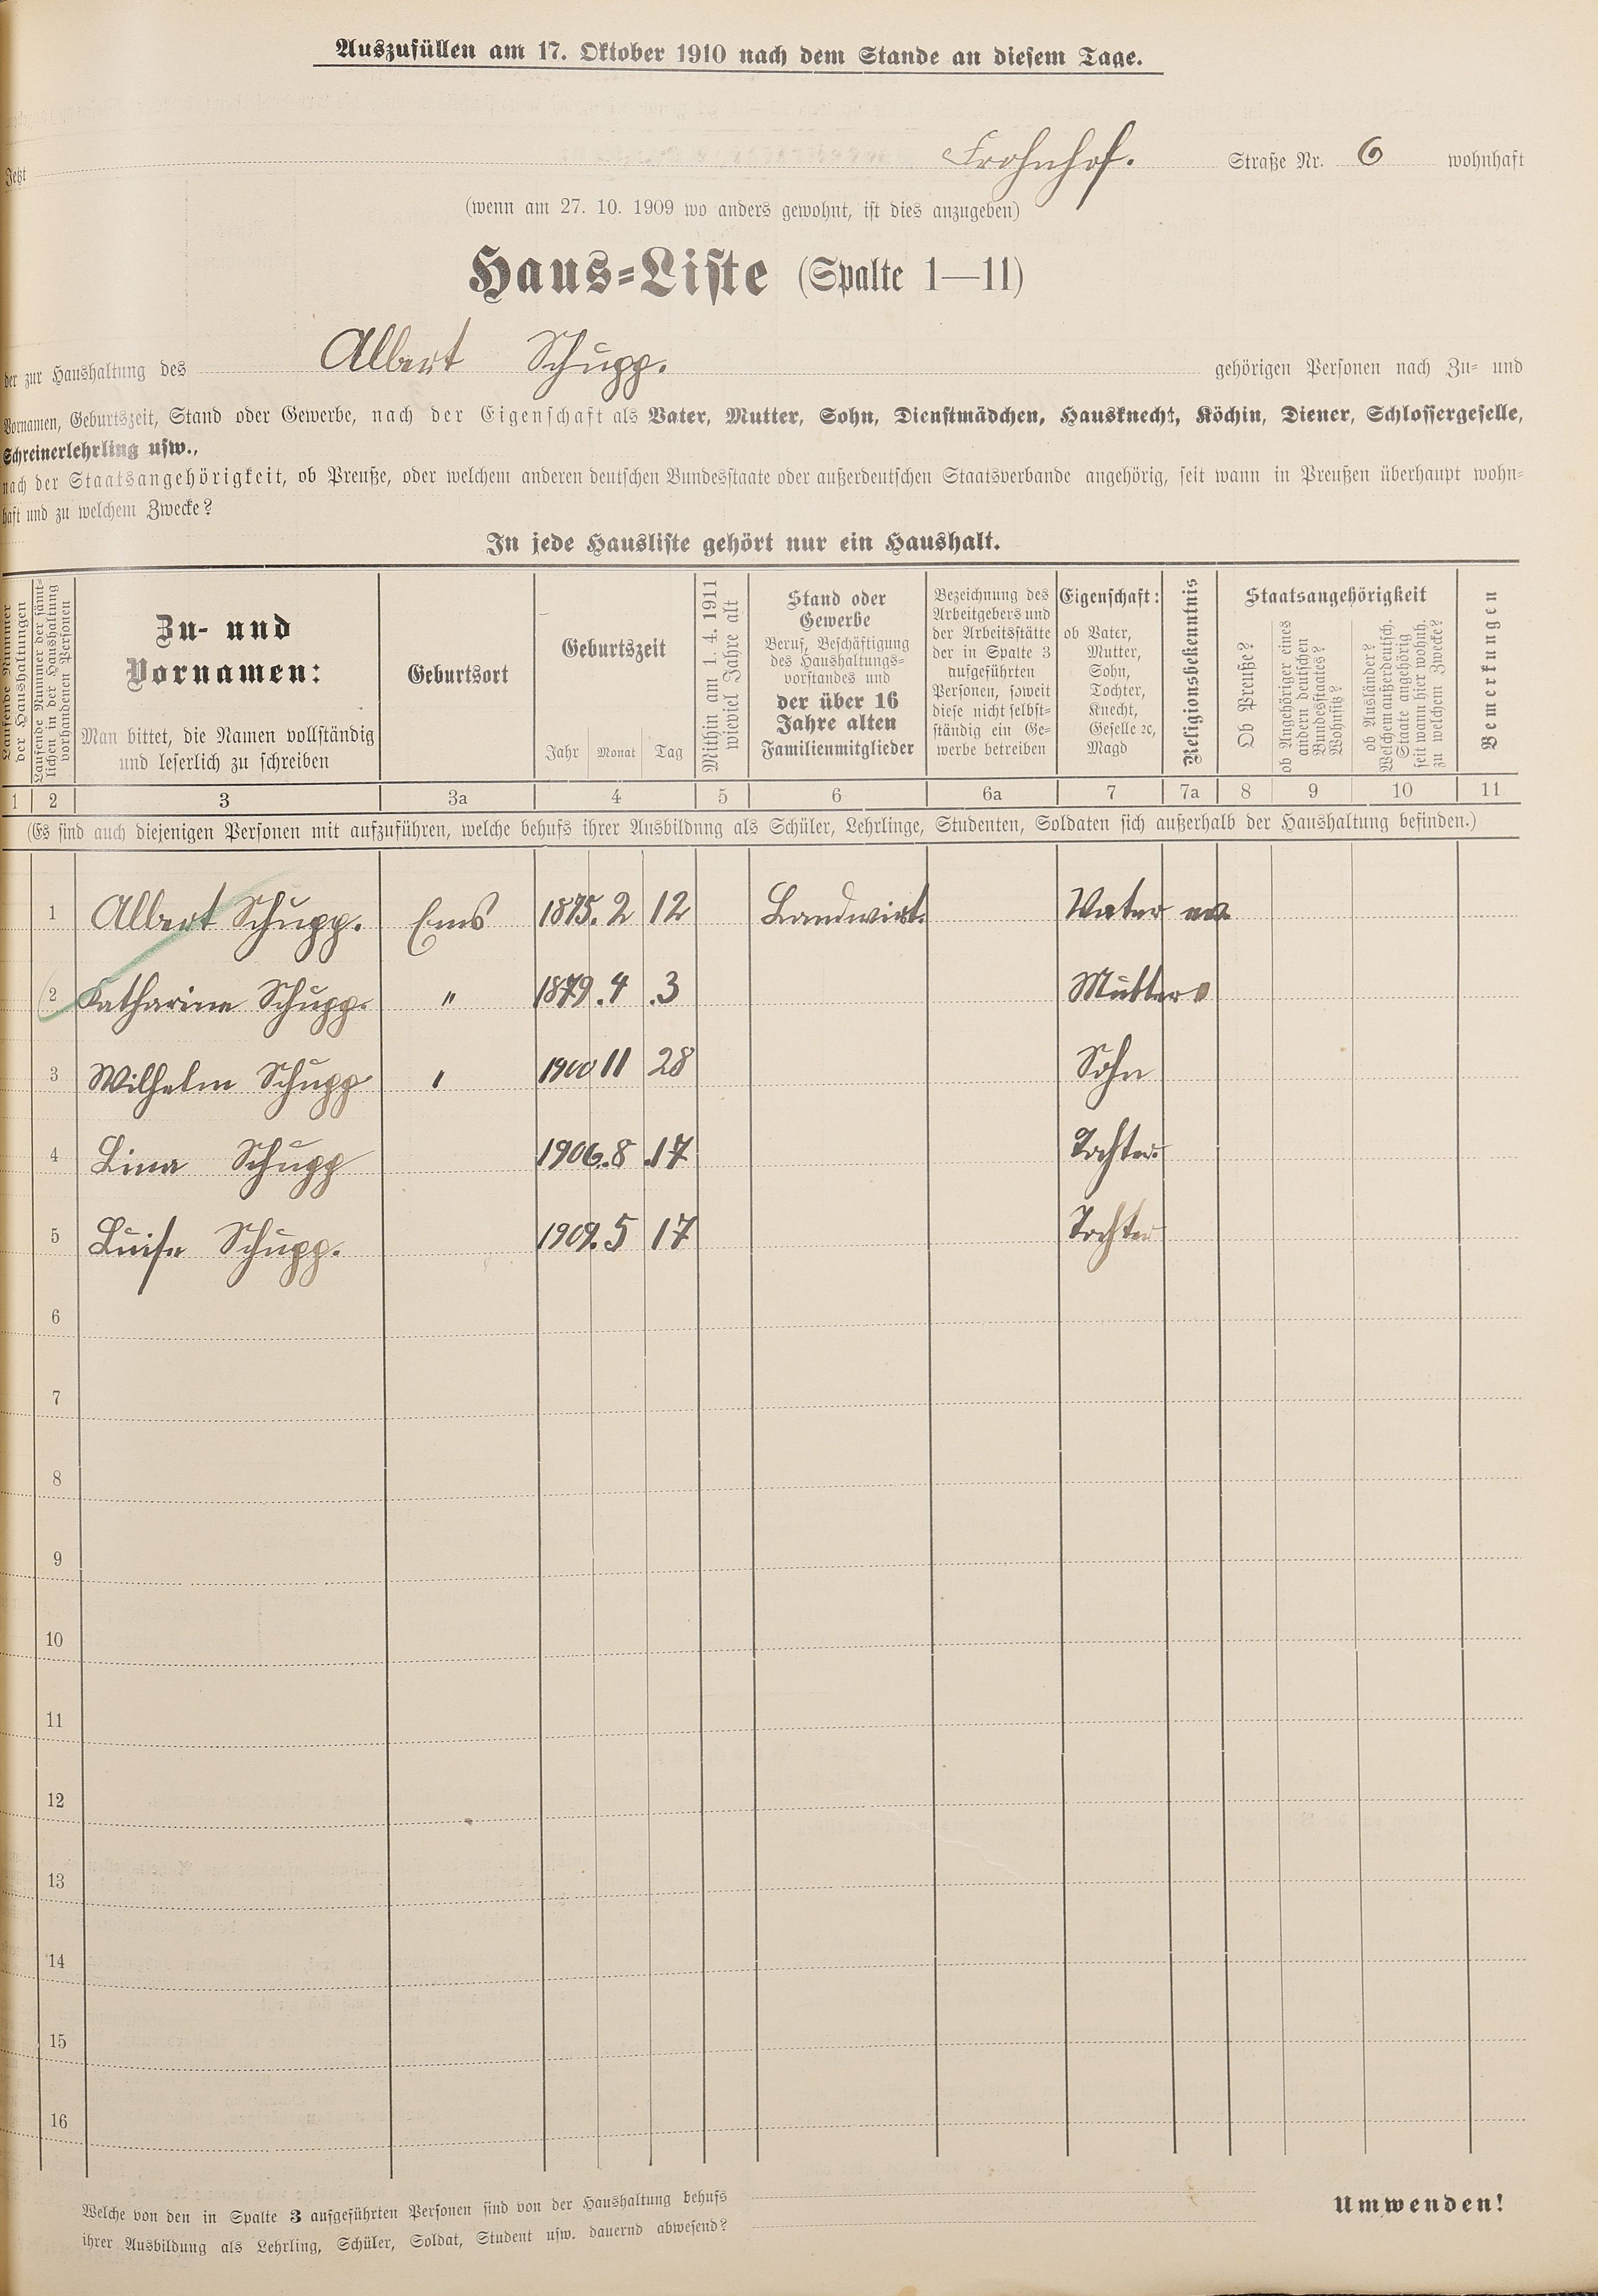 Auszufüllen am 17. Oktober 1910 nach dem Stande an diesem Tage.
Jetzt Frohnhof. Straße Nr. 6 wohnhaft
(wenn am 27. 10. 1909 wo anders gewohnt, ist dies anzugeben)
Haus-Liste (Spalte 1—11)
der zur Haushaltung des Albert Schupp. gehörigen Personen nach Zu- und
Vornamen, Geburtszeit, Stand oder Gewerbe, nach der Eigenschaft als Vater, Mutter, Sohn, Dienstmädchen, Hausknecht, Köchin, Diener, Schlossergeselle,
Schreinerlehrling usw.,
nach der Staatsangehörigkeit, ob Preuße, oder welchem anderen deutschen Bundesstaate oder außerdeutschen Staatsverbande angehörig, seit wann in Preußen überhaupt wohn-
haft und zu welchem Zwecke?
In jede Hausliste gehört nur ein Haushalt.
Laufende Nummer
der Haushaltungen
Laufende Nummer der sämt-
lichen in der Haushaltung
vorhandenen Personen
Zu- und
Vornamen:
Man bittet, die Namen vollständig
und leserlich zu schreiben
Geburtsort
Geburtszeit
Jahr Monat Tag
Mithin am 1. 4. 1911
wieviel Jahre alt
Stand oder
Gewerbe
Beruf, Beschäftigung
des Haushaltungs-
vorstandes und
der über 16
Jahre alten
Familienmitglieder
Bezeichnung des
Arbeitgebers und
der Arbeitsstätte
der in Spalte 3
aufgeführten
Personen, soweit
diese nicht selbst-
ständig ein Ge-
werbe betreiben
Eigenschaft:
ob Vater,
Mutter,
Sohn,
Tochter,
Knecht,
Geselle ꝛc,
Magd
Religionsbekenntnis
Staatsangehörigkeit
Ob Preuße?
ob Angehöriger eines
andern deutschen
Bundesstaates?
Wohnsitz?
ob Ausländer?
Welchem außerdeutsch.
Staate angehörig
seit wann hier wohnh.
zu welchem Zwecke?
Bemerkungen
1 2 3 3a 4 5 6 6a 7 7a 8 9 10 11
(Es sind auch diejenigen Personen mit aufzuführen, welche behufs ihrer Ausbildung als Schüler, Lehrlinge, Studenten, Soldaten sich außerhalb der Haushaltung befinden.)
1 Albert Schupp. Ems 1875. 2 12 Landwirt. Vater
2 Katharina Schupp. " 1879. 4 .3 Mutter
3 Wilhelm Schupp " 1900 11 28 Sohn
4 Lina Schupp 1906. 8 .17 Tochter.
5 Luise Schupp. 1909. 5 17 Tochter
6
7
8
9
10
11
12
13
14
15
16
Welche von den in Spalte 3 aufgeführten Personen sind von der Haushaltung behufs
ihrer Ausbildung als Lehrling, Schüler, Soldat, Student usw. dauernd abwesend?
Umwenden!